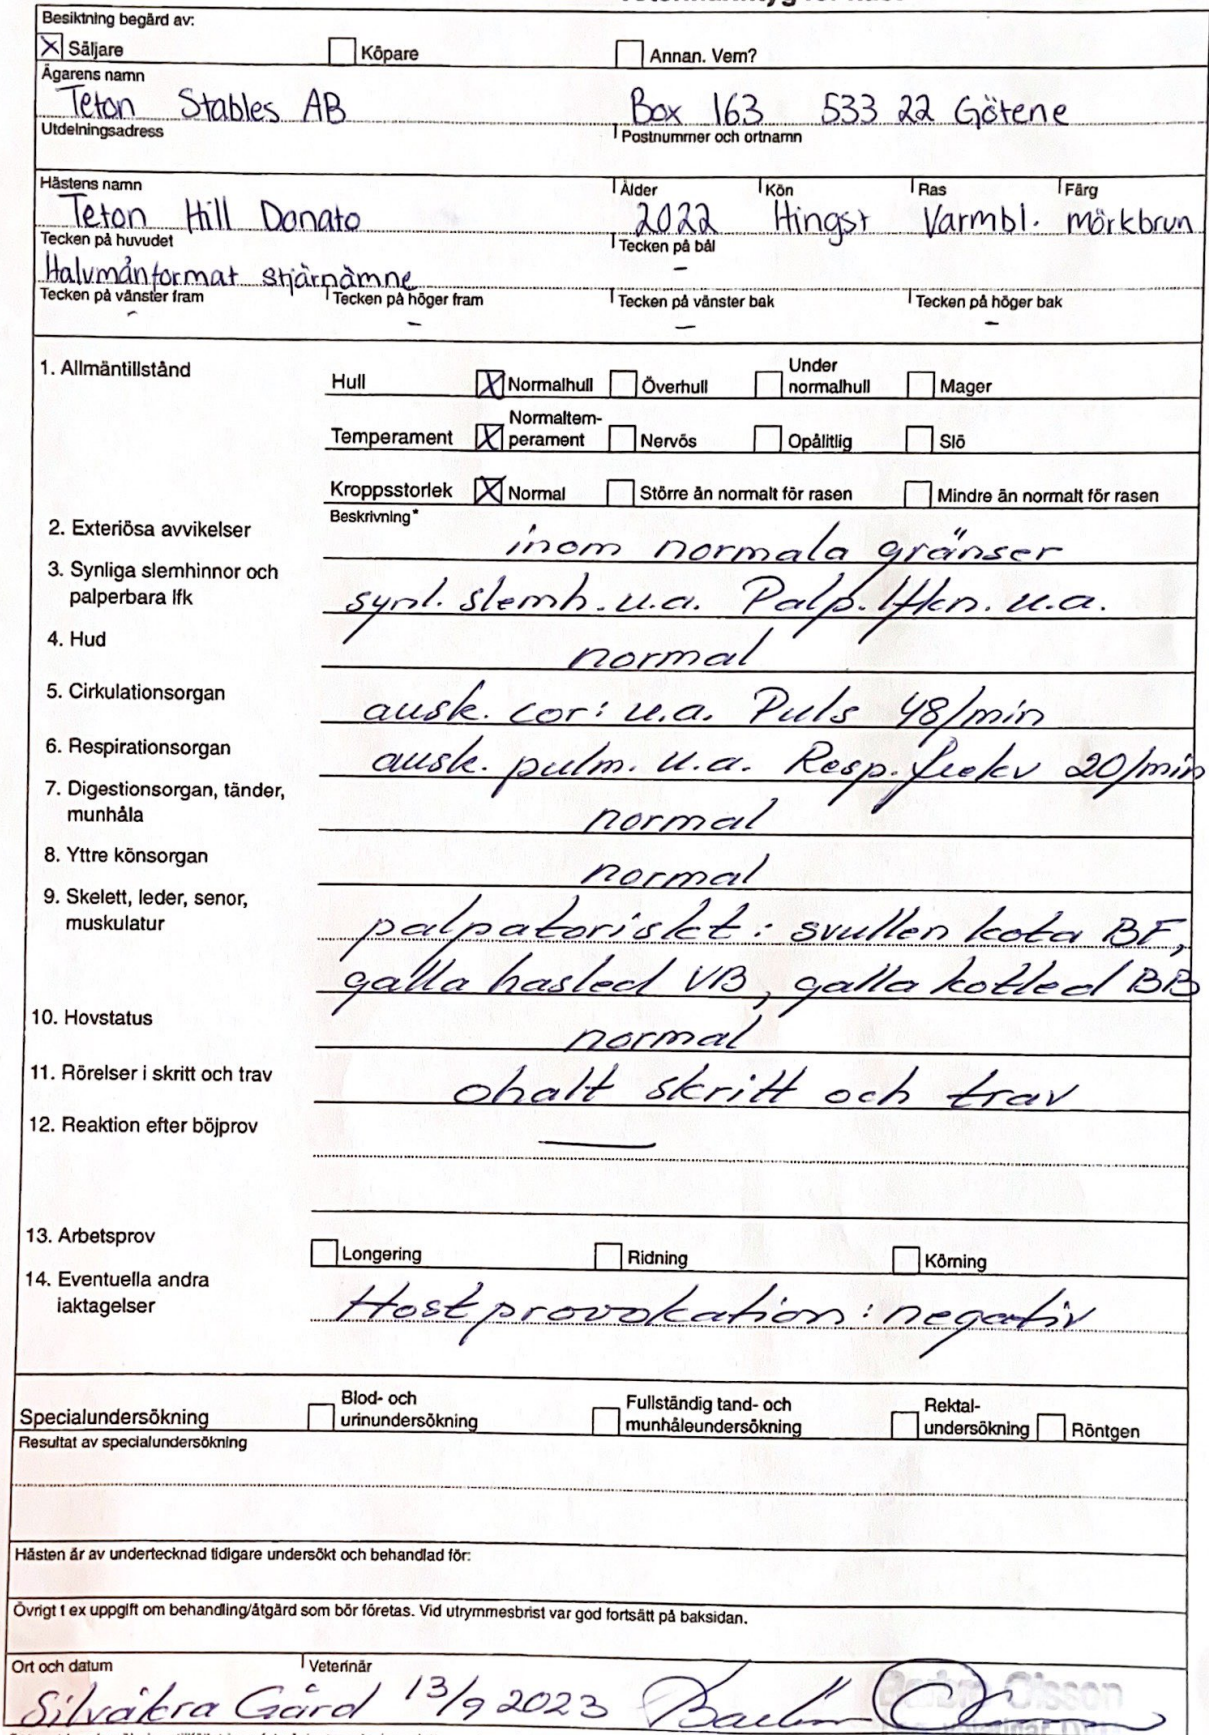 Besiktning begärd av:
X Säljare Köpare Annan. Vem?
Ägarens namn
Teton Stables AB Box 163 533 22 Götene
Utdelningsadress Postnummer och ortnamn
Hästens namn Ålder Kön Ras Färg
Teton Hill Donato 2022 Hingst Varmbl. mörkbrun
Tecken på huvudet Tecken på bål
Halvmånformat stjärnämne -
Tecken på vänster fram Tecken på höger fram Tecken på vänster bak Tecken på höger bak
- - - -
1. Allmäntillstånd
Hull X Normalhull Överhull Under normalhull Mager
Temperament X Normaltem-perament Nervös Opålitlig Slö
Kroppsstorlek X Normal Större än normalt för rasen Mindre än normalt för rasen
Beskrivning*
2. Exteriösa avvikelser inom normala gränser
3. Synliga slemhinnor och
palperbara lfk synl. slemh. u.a. Palp. lfkn. u.a.
4. Hud normal
5. Cirkulationsorgan ausk. cor: u.a. Puls 48/min
6. Respirationsorgan ausk. pulm. u.a. Resp. frekv 20/min
7. Digestionsorgan, tänder,
munhåla normal
8. Yttre könsorgan normal
9. Skelett, leder, senor,
muskulatur palpatoriskt: svullen kota BF,
galla hasled VB, galla kotled BB
10. Hovstatus normal
11. Rörelser i skritt och trav ohalt skritt och trav
12. Reaktion efter böjprov —
13. Arbetsprov Longering Ridning Körning
14. Eventuella andra
iaktagelser Hostprovokation: negativ
Specialundersökning Blod- och urinundersökning Fullständig tand- och munhåleundersökning Rektal-undersökning Röntgen
Resultat av specialundersökning
Hästen är av undertecknad tidigare undersökt och behandlad för:
Övrigt t ex uppgift om behandling/åtgärd som bör företas. Vid utrymmesbrist var god fortsätt på baksidan.
Ort och datum Veterinär
Silvåkra Gård 13/9 2023 Olsson